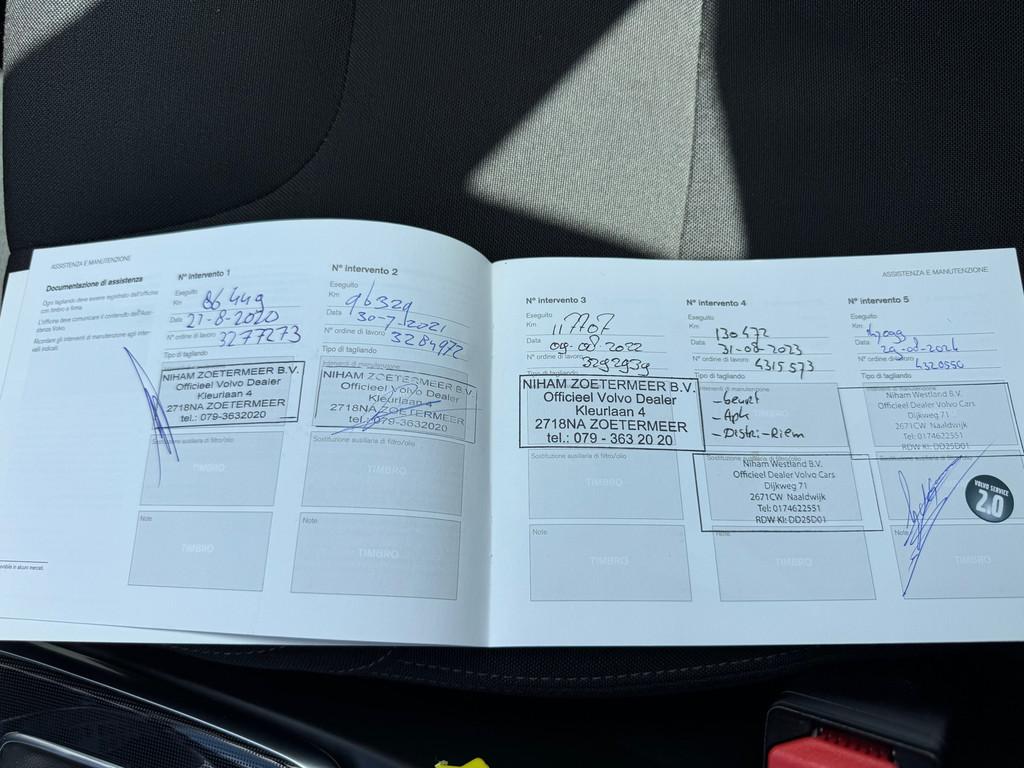 ASSISTENZA E MANUTENZIONE
Documentazione di assistenza
Ogni tagliando deve essere registrato dall'officina
con timbro e firma.
L'officina deve comunicare il contenuto dell'Assi-
stenza Volvo.
Ricordare gli interventi di manutenzione agli inter-
valli indicati.
N° intervento 1
Eseguito
Km 86449
Data 27-8-2020
N° ordine di lavoro 3277273
Tipo di tagliando
NIHAM ZOETERMEER B.V.
Officieel Volvo Dealer
Kleurlaan 4
2718NA ZOETERMEER
tel.: 079-3632020
TIMBRO
Note
TIMBRO
N° intervento 2
Eseguito
Km 96329
Data 30-7-2021
N° ordine di lavoro 3284972
Tipo di tagliando
NIHAM ZOETERMEER B.V.
Officieel Volvo Dealer
Kleurlaan 4
2718NA ZOETERMEER
tel.: 079-3632020
Sostituzione ausiliaria di filtro/olio
TIMBRO
Note
TIMBRO
ASSISTENZA E MANUTENZIONE
N° intervento 3
Eseguito
Km 117707
Data 09-08-2022
N° ordine di lavoro 3292939
NIHAM ZOETERMEER B.V.
Officieel Volvo Dealer
Kleurlaan 4
2718NA ZOETERMEER
tel.: 079 - 363 20 20
Sostituzione ausiliaria di filtro/olio
TIMBRO
Note
TIMBRO
N° intervento 4
Eseguito
Km 130472
Data 31-08-2023
N° ordine di lavoro 4315573
Tipo di tagliando
Interventi di manutenzione
- beurt
- Apk
- Distri-Riem
Sostituzione ausiliaria di filtro/olio
Niham Westland B.V.
Officieel Dealer Volvo Cars
Dijkweg 71
2671CW Naaldwijk
Tel: 0174622551
RDW KI: DD25D01
Note
TIMBRO
N° intervento 5
Eseguito
Km
Data
N° ordine di lavoro 4320550
Tipo di tagliando
Niham Westland B.V.
Officieel Dealer Volvo Cars
Dijkweg 71
2671CW Naaldwijk
Tel: 0174622551
RDW KI: DD25D01
VOLVO SERVICE
2.0
Note
TIMBRO